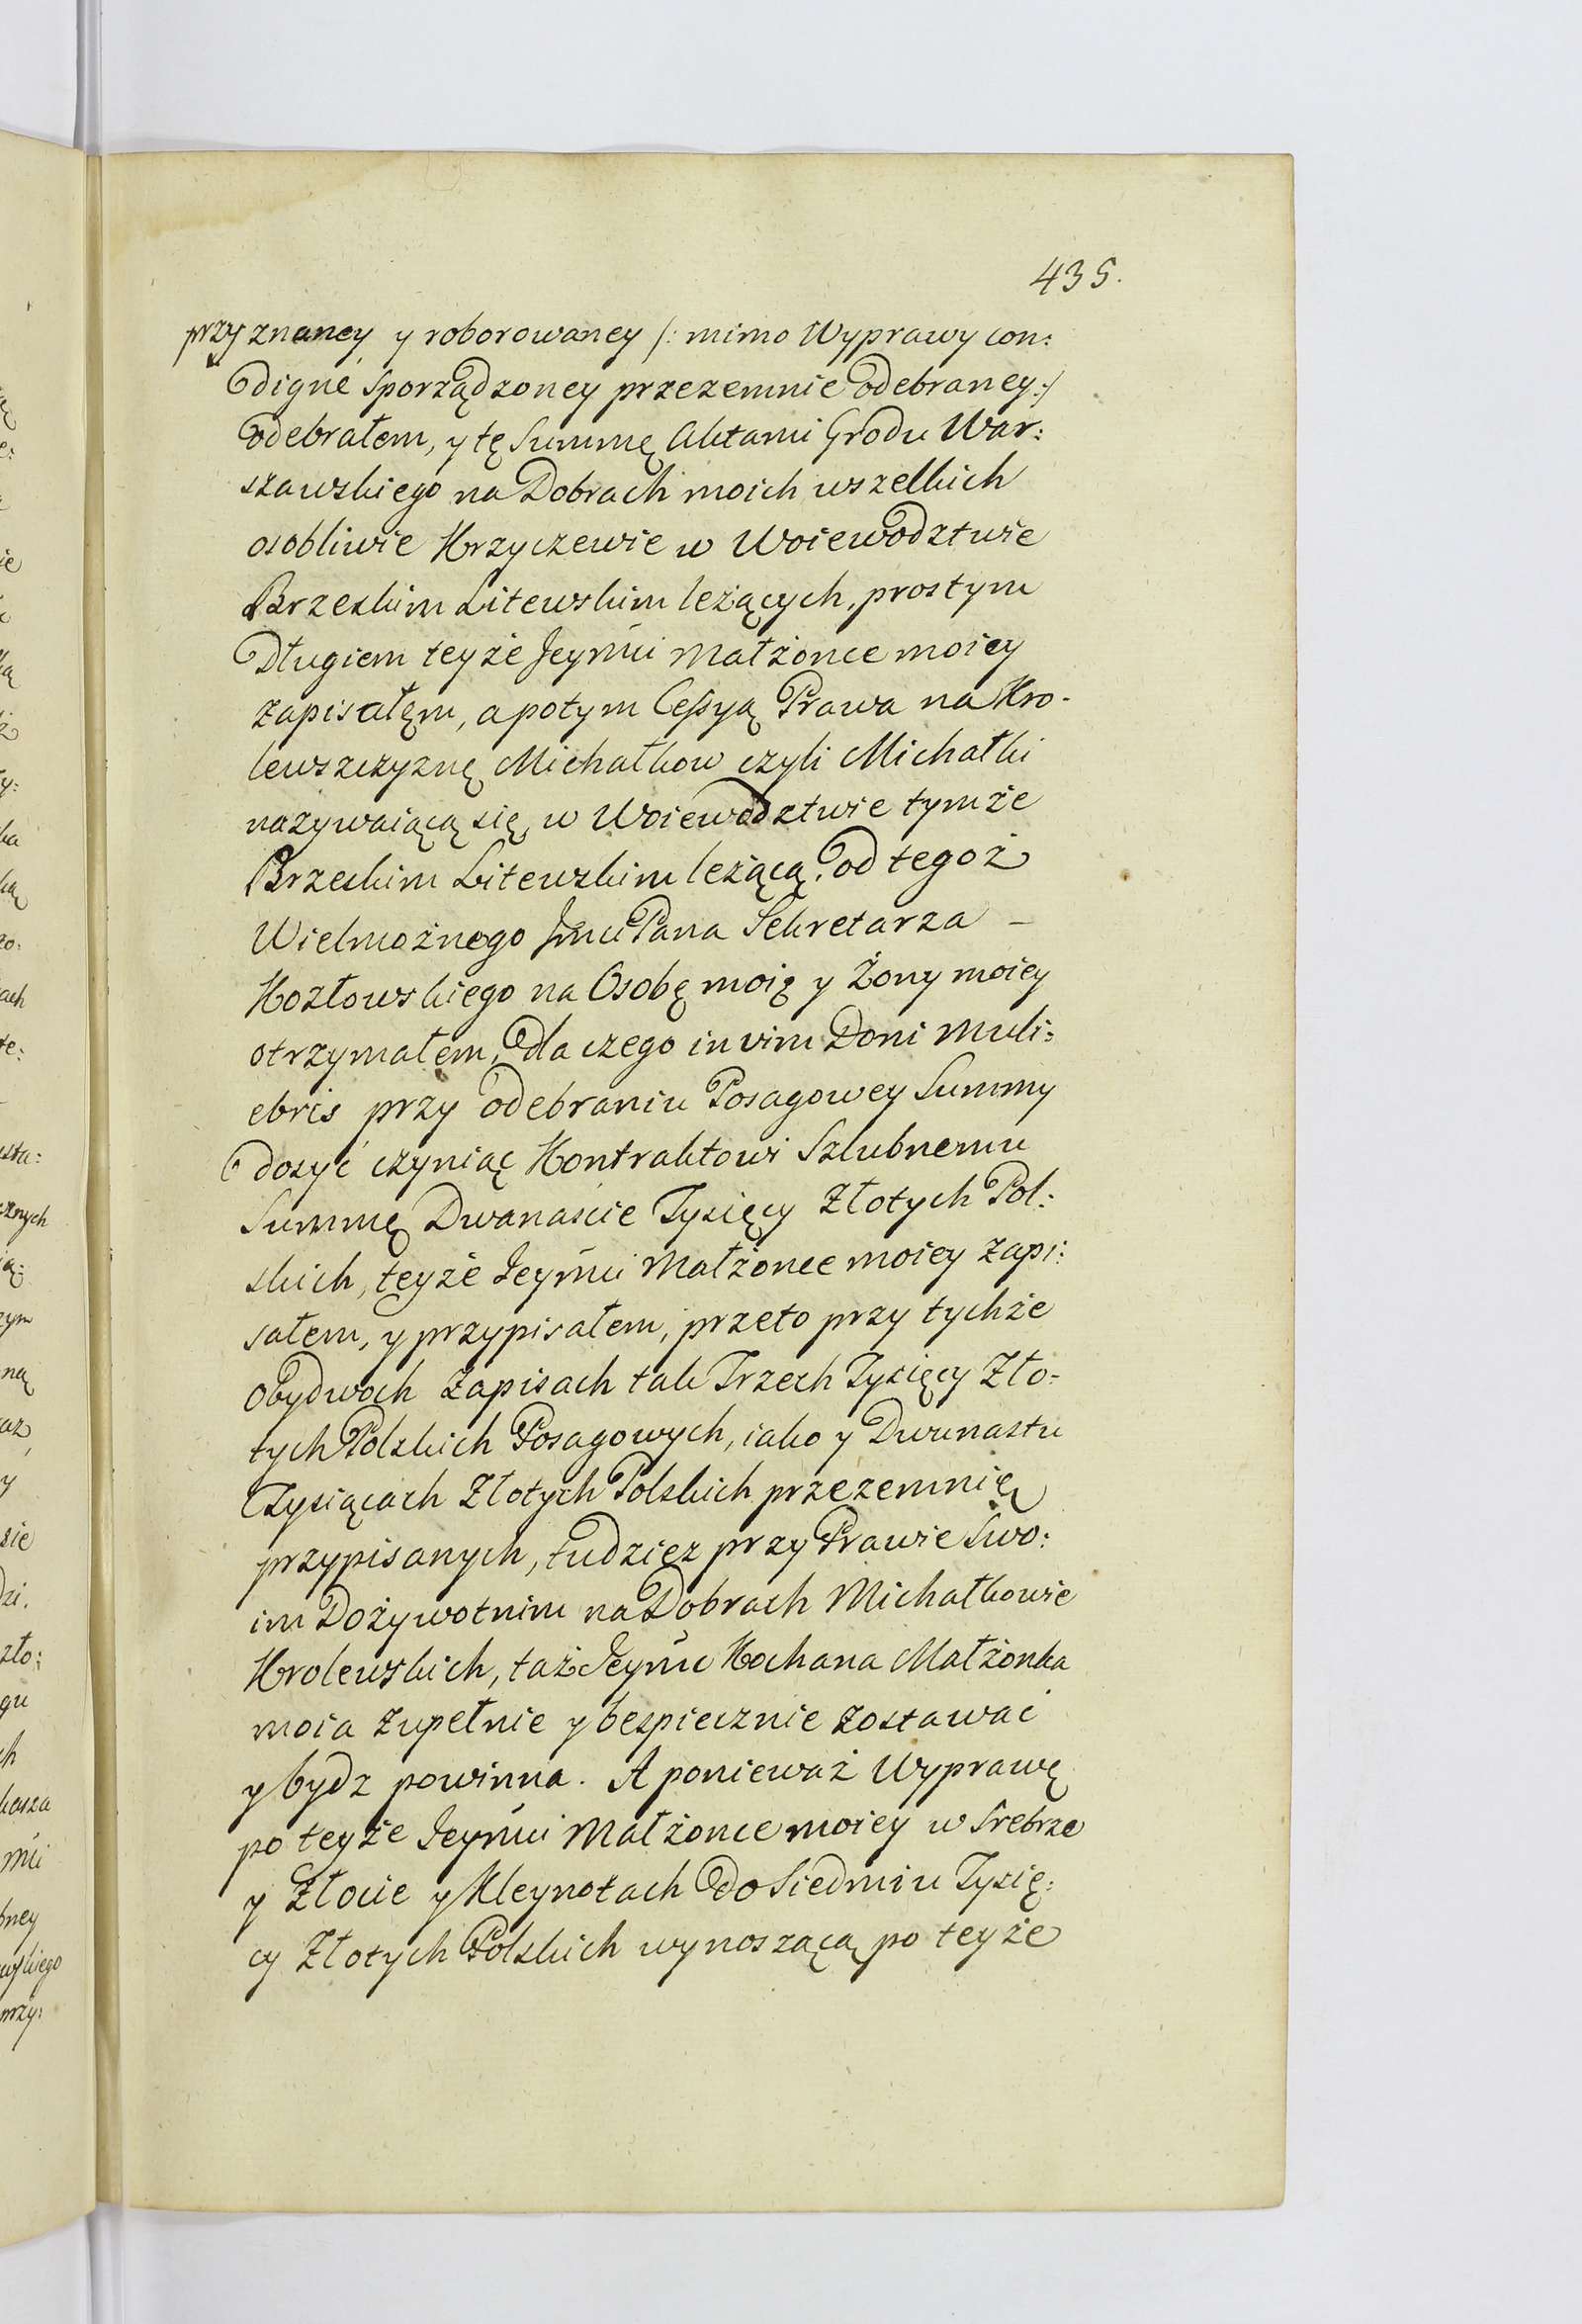 435.
przyznaney y roborowaney /: mimo Wyprawy con:
digné sporządzoney przezemnie odebraney :/
odebrałem, y tę Summę Aktami Grodu War:
szawskiego na Dobrach moich wszelkich
osobliwie Krzyczewie w Woiewodztwie
Brzeskim Litewskim leżących, prostym
Długiem teyże Jeymći Małżonce moiey
zapisałęm, a potym Cessyą Prawa na Kro-
lewszczyznę Michałkow czyli Michałki
nazywaiącą się, w Woiewodztwie tymże
Brzeskim Litewskim leżącą, od tegoż
Wielmożnego Jmci Pana Sekretarza –
Kozłowskiego na Osobę moię y Żony moiey
otrzymałem, dla czego in vim Doni Muli:
ebris przy odebraniu Posagowey Summy
dosyć czyniąc Kontraktowi Szlubnemu
Summę Dwanaście Tysięcy Złotych Pol:
skich, teyże Jeymći Małżonce moiey zapi:
sałem, y przypisałem, przeto przy tychże
obydwoch Zapisach tak Trzech Tysięcy Zło-
tych Polskich Posagowych, iako y Dwunastu
Tysiącach Złotych Polskich przezemnię
przypisanych, tudzież przy Prawie Swo:
im Dożywotnim na Dobrach Michałkowie
Krolewskich, taż Jeymć Kochana Małżonka
moia zupełnie y bespiecznie zostawać
y bydz powinna. A ponieważ Wyprawę
po teyże Jeymći Małżonce moiey w Srebrze
y Złocie y Kleynotach do Siedmiu Tysię:
cy Złotych Polskich wynoszącą po teyże